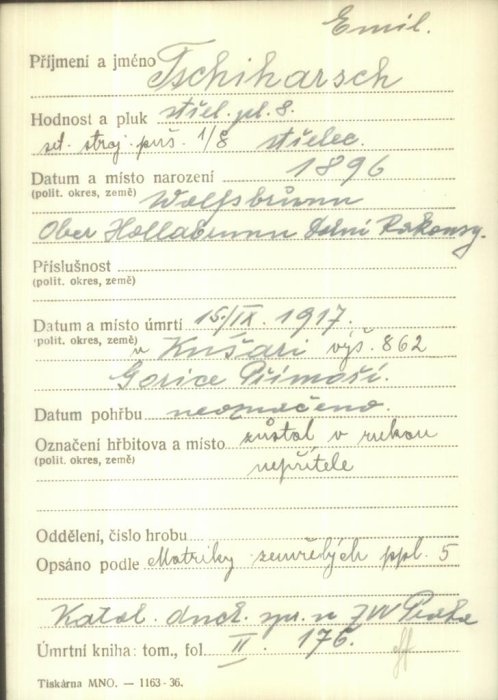 Emil.
Příjmení a jméno Tschiharsch
Hodnost a pluk střel. pl. 8.
set. stroj. puš. 1/8 střelec.
Datum a místo narození 1896
(polit. okres, země) Wolfsbrunn
Ober Hollabrunn Dolní Rakousy.
Příslušnost
(polit. okres, země)
Datum a místo úmrtí 15/IX. 1917.
(polit. okres, země) v Kušari výš. 862
Gorice Přímoří.
Datum pohřbu neoznačeno.
Označení hřbitova a místo zůstal v rukou
(polit. okres, země) nepřítele
Oddělení, číslo hrobu
Opsáno podle Matriky zemřelých ppl. 5
Katol. duch. spr. ZVV Praha
Úmrtní kniha: tom., fol. II. 176.
Tiskárna MNO. — 1163-36.